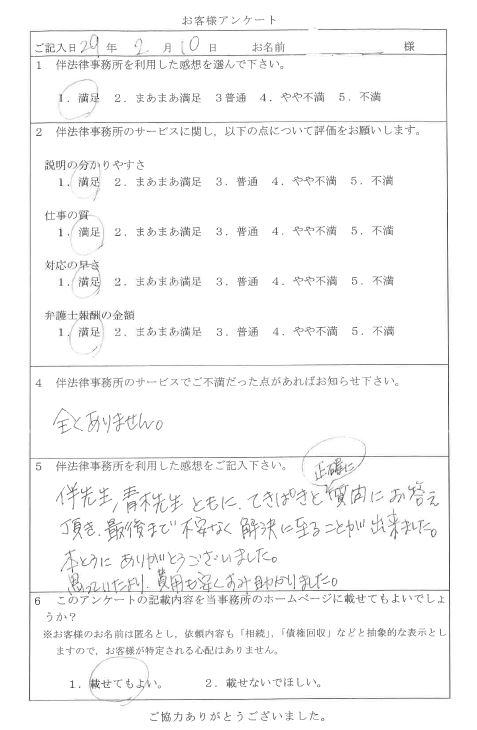 お客様アンケート
ご記入日 29年 2月 10日 お名前 様
1 伴法律事務所を利用した感想を選んで下さい。
1．満足 2．まあまあ満足 3普通 4．やや不満 5．不満
2 伴法律事務所のサービスに関し，以下の点について評価をお願いします。
説明の分かりやすさ
1．満足 2．まあまあ満足 3．普通 4．やや不満 5．不満
仕事の質
1．満足 2．まあまあ満足 3．普通 4．やや不満 5．不満
対応の早さ
1．満足 2．まあまあ満足 3．普通 4．やや不満 5．不満
弁護士報酬の金額
1．満足 2．まあまあ満足 3．普通 4．やや不満 5．不満
4 伴法律事務所のサービスでご不満だった点があればお知らせ下さい。
全くありません。
5 伴法律事務所を利用した感想をご記入下さい。
正確に
伴先生，青木先生ともに、てきぱきと質問にお答え
頂き、最後まで不安なく解決に至ることが出来ました。
本とうにありがとうございました。
思っていたより、費用も安くすみ助かりました。
6 このアンケートの記載内容を当事務所のホームページに載せてもよいでしょ
うか？
※お客様のお名前は匿名とし，依頼内容も「相続」，「債権回収」などと抽象的な表示とし
ますので，お客様が特定される心配はありません。
1．載せてもよい。 2．載せないでほしい。
ご協力ありがとうございました。